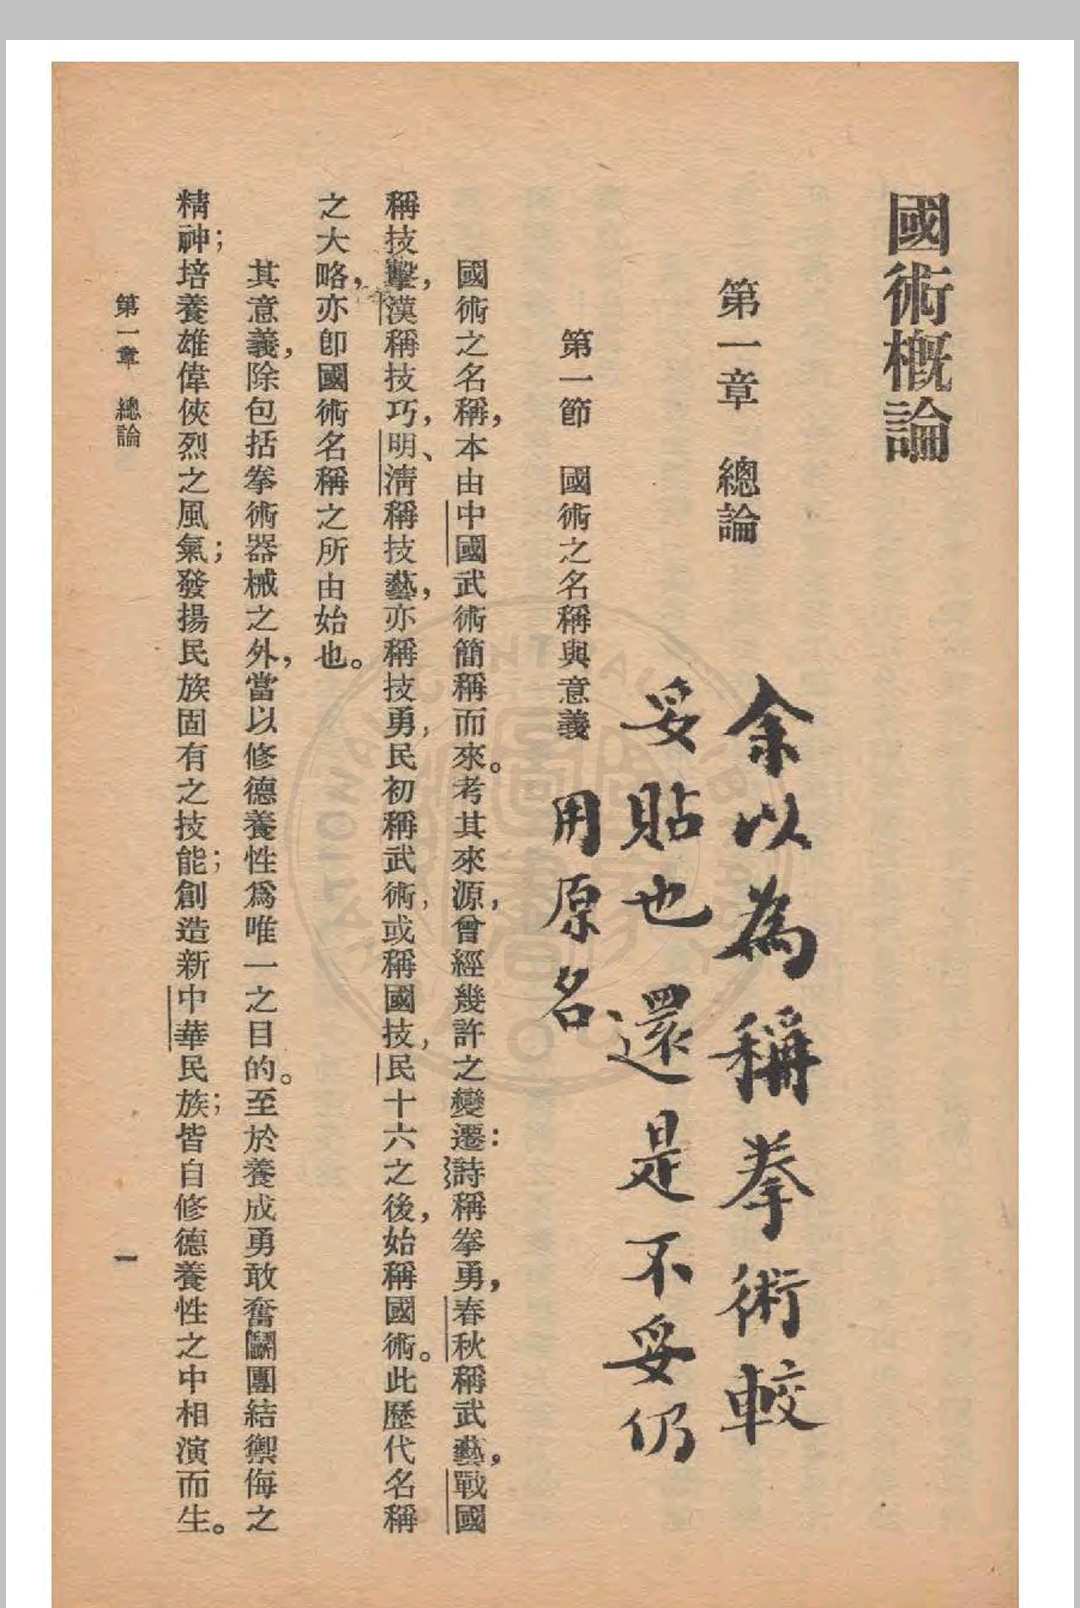 國術概論
第一章　總論
余以為稱拳術較
妥貼也還是不妥仍
用原名
第一節　國術之名稱與意義
國術之名稱，本由中國武術簡稱而來。考其來源，曾經幾許之變遷：詩稱拳勇，春秋稱武藝，戰國
稱技擊，漢稱技巧，明、清稱技藝，亦稱技勇，民初稱武術，或稱國技，民十六之後，始稱國術。此歷代名稱
之大略，亦卽國術名稱之所由始也。
其意義，除包括拳術器械之外，當以修德養性爲唯一之目的。至於養成勇敢奮鬭團結禦侮之
精神；培養雄偉俠烈之風氣；發揚民族固有之技能；創造新中華民族；皆自修德養性之中相演而生。
第一章　總論
一